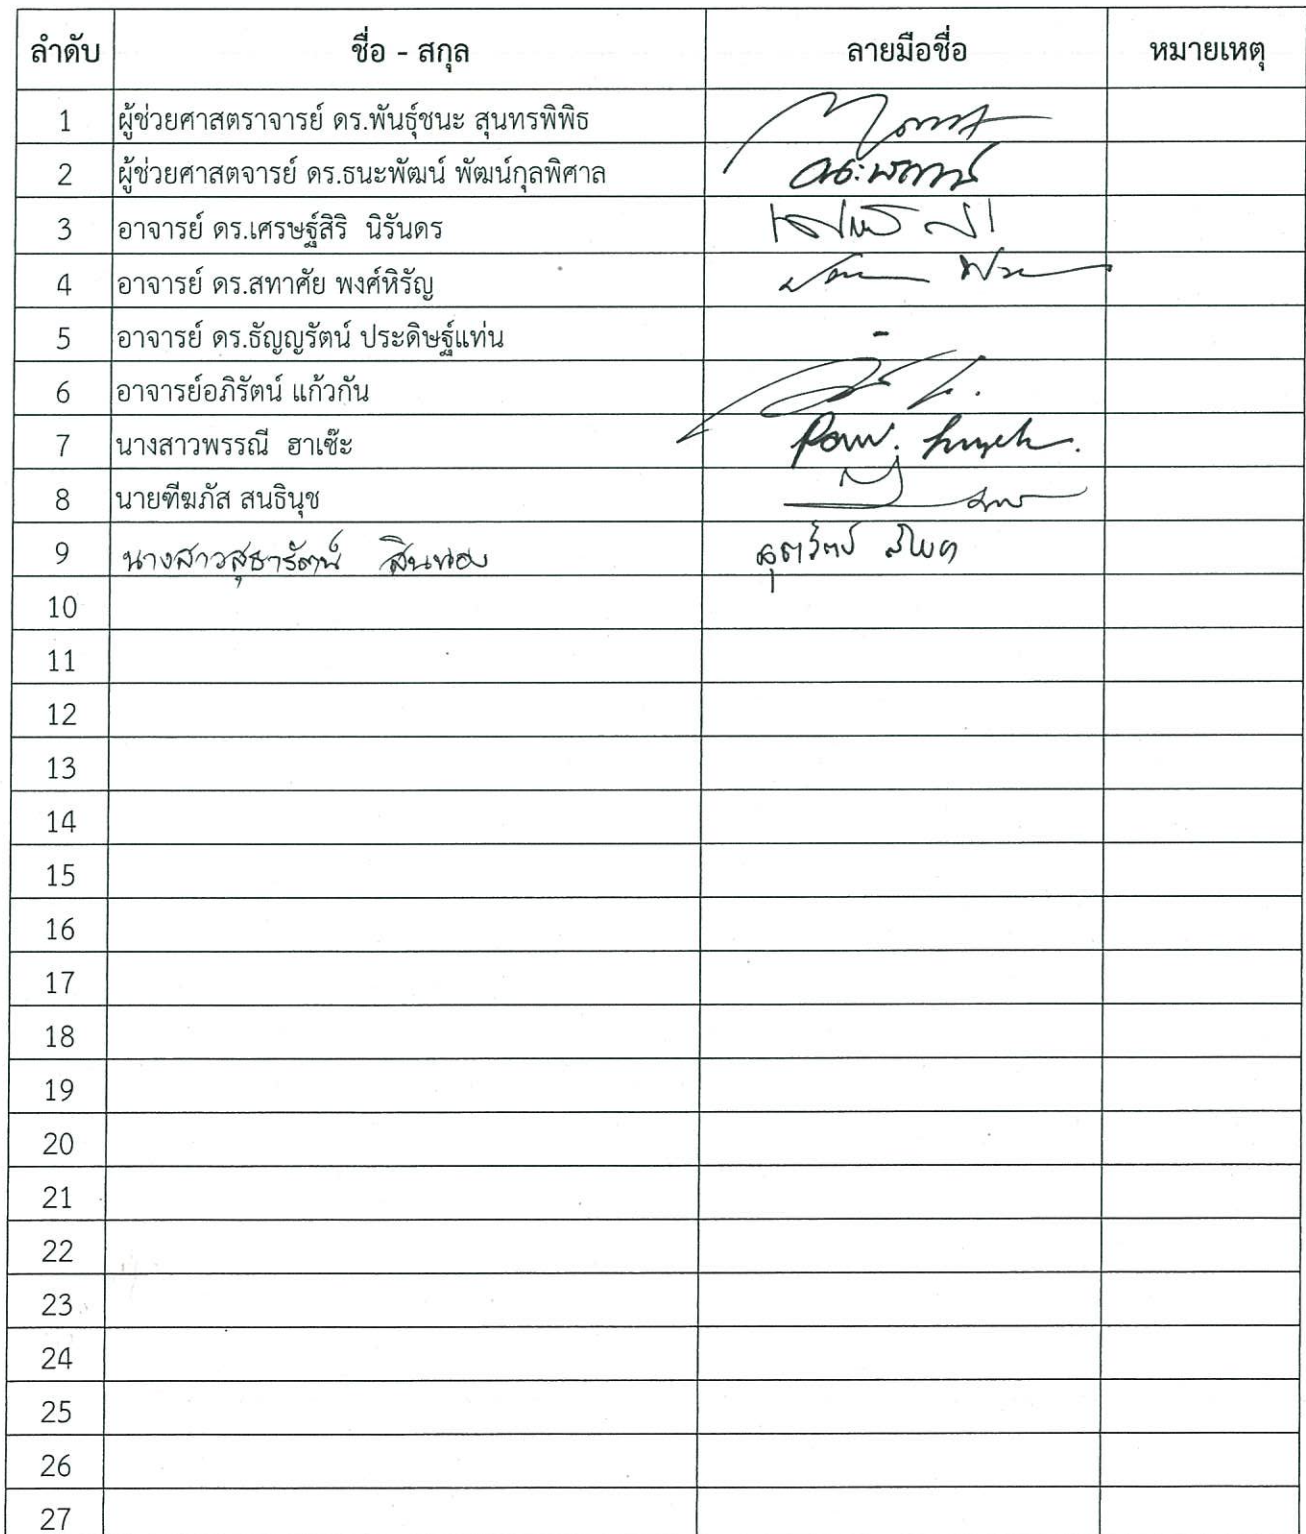 ลำดับ ชื่อ - สกุล ลายมือชื่อ หมายเหตุ
1 ผู้ช่วยศาสตราจารย์ ดร.พันธุ์ชนะ สุนทรพิพิธ
2 ผู้ช่วยศาสตจารย์ ดร.ธนะพัฒน์ พัฒน์กุลพิศาล
3 อาจารย์ ดร.เศรษฐ์สิริ นิรันดร
4 อาจารย์ ดร.สทาศัย พงศ์หิรัญ
5 อาจารย์ ดร.ธัญญรัตน์ ประดิษฐ์แท่น -
6 อาจารย์อภิรัตน์ แก้วกัน
7 นางสาวพรรณี ฮาเซ๊ะ
8 นายฑีฆภัส สนธินุช
9 นางสาวสุธารัตน์ สินทอง
10
11
12
13
14
15
16
17
18
19
20
21
22
23
24
25
26
27